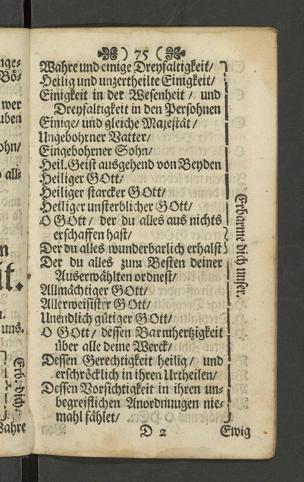 ) 75 (
Wahre und einige Dreyfaltigkeit/
Heilig und unzertheilte Einigkeit/
Einigkeit in der Wesenheit / und
Dreyfaltigkeit in den Persohnen
Einige/ und gleiche Majestät/
Ungebohrner Vatter/
Eingebohrner Sohn/
Heil. Geist ausgehend von Beyden
Heiliger GOtt/
Heiliger starcker GOtt/
Heiliger unsterblicher GOtt/
O GOtt/ der du alles aus nichts
erschaffen hast/
Der du alles wunderbarlich erhalst
Der du alles zum Besten deiner
Auserwählten ordnest/
Allmächtiger GOtt/
Allerweisister GOtt/
Unendlich gütiger GOtt/
O GOtt/ dessen Barmhertzigkeit
über alle deine Werck/
Dessen Gerechtigkeit heilig/ und
erschröcklich in ihren Urtheilen/
Dessen Vorsichtigkeit in ihren un-
begreislichen Anordnungen nie-
mahl fählet/
Erbarme dich unser.
D 2 Ewig